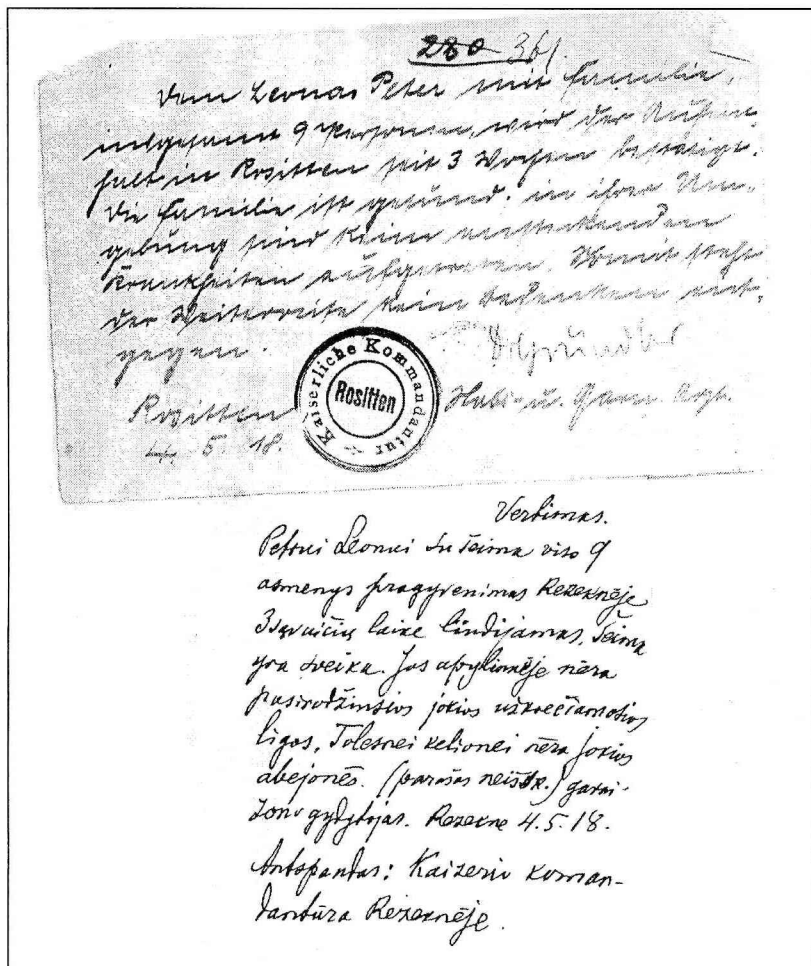 280 361
Dem Leonas Peter mit Familie,
insgesamt 9 Personen, wird der Aufent-
halt in Rositten seit 3 Wochen bestätigt.
Die Familie ist gesund. in ihrer Um-
gebung sind keine ansteckenden
Krankheiten aufgetreten. Somit steht
der Weiterreise kein Bedenken ent-
gegen.
Kaiserliche Kommandantur
Rositten
Rositten
4. 5. 18.
Vertimas.
Petrui Leonui su šeima viso 9
asmenys pragyvenimas Rezeknėje
3 savaičių laike liudijamas. Šeima
yra sveika. Jos apylinkėje nėra
pasirodžiusios jokios užkrečiamosios
ligos. Tolesnei kelionei nėra jokios
abejonės. (parašas neišsk.) garni-
zono gydytojas. Rezekne 4.5.18.
Antspaudas: Kaizerio koman-
dantūra Rezeknėje.